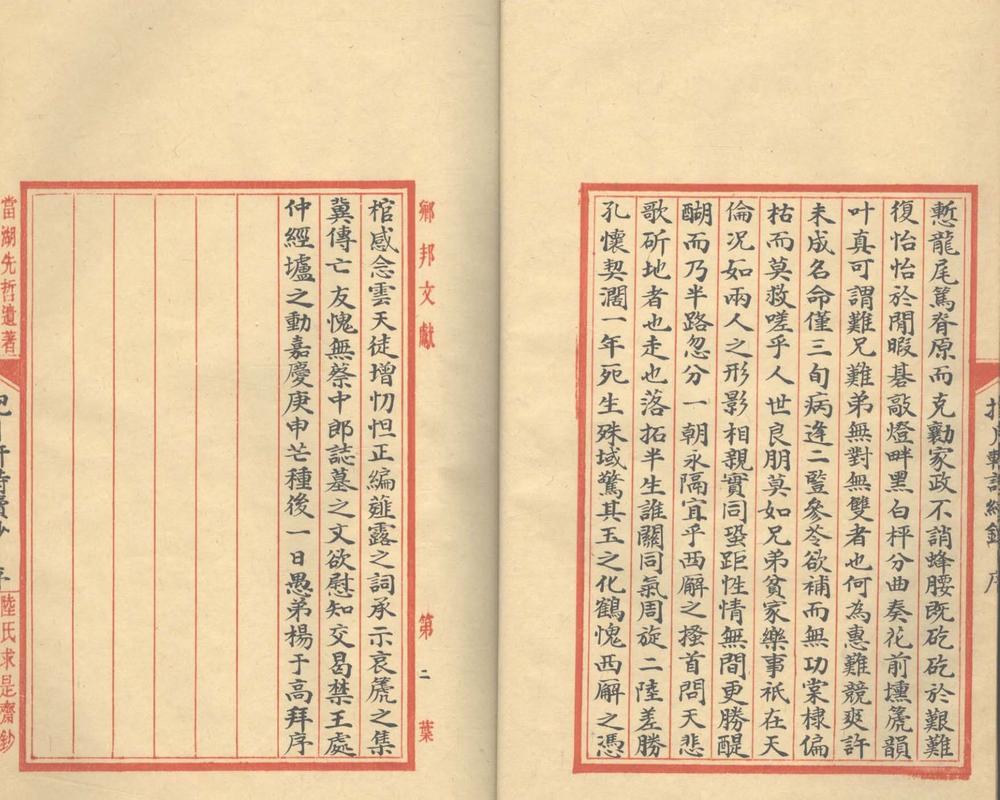 慙龍尾篤脊原而克勷家政不誚蜂腰既矻矻於艱難
復怡怡於閒暇碁敲燈畔黑白枰分曲奏花前壎箎韻
叶真可謂難兄難弟無對無雙者也何為惠難競爽許
未成名命僅三旬病逢二豎參苓欲補而無功棠棣偏
枯而莫救嗟乎人世良朋莫如兄弟貧家樂事祇在天
倫况如兩人之形影相親實同蛩距性情無間更勝醍
醐而乃半路忽分一朝永隔宜乎西廨之搔首問天悲
歌斫地者也走也落拓半生誰關同氣周旋二陸差勝
孔懷契濶一年死生殊域驚其玉之化鶴愧西廨之憑
鄉邦文獻 第二葉
棺感念雲天徒增忉怛正編薤露之詞承示哀箎之集
冀傳亡友愧無蔡中郎誌墓之文欲慰知交曷禁王處
仲經壚之動嘉慶庚申芒種後一日愚弟楊于高拜序
當湖先哲遺著
陸氏求是齋鈔